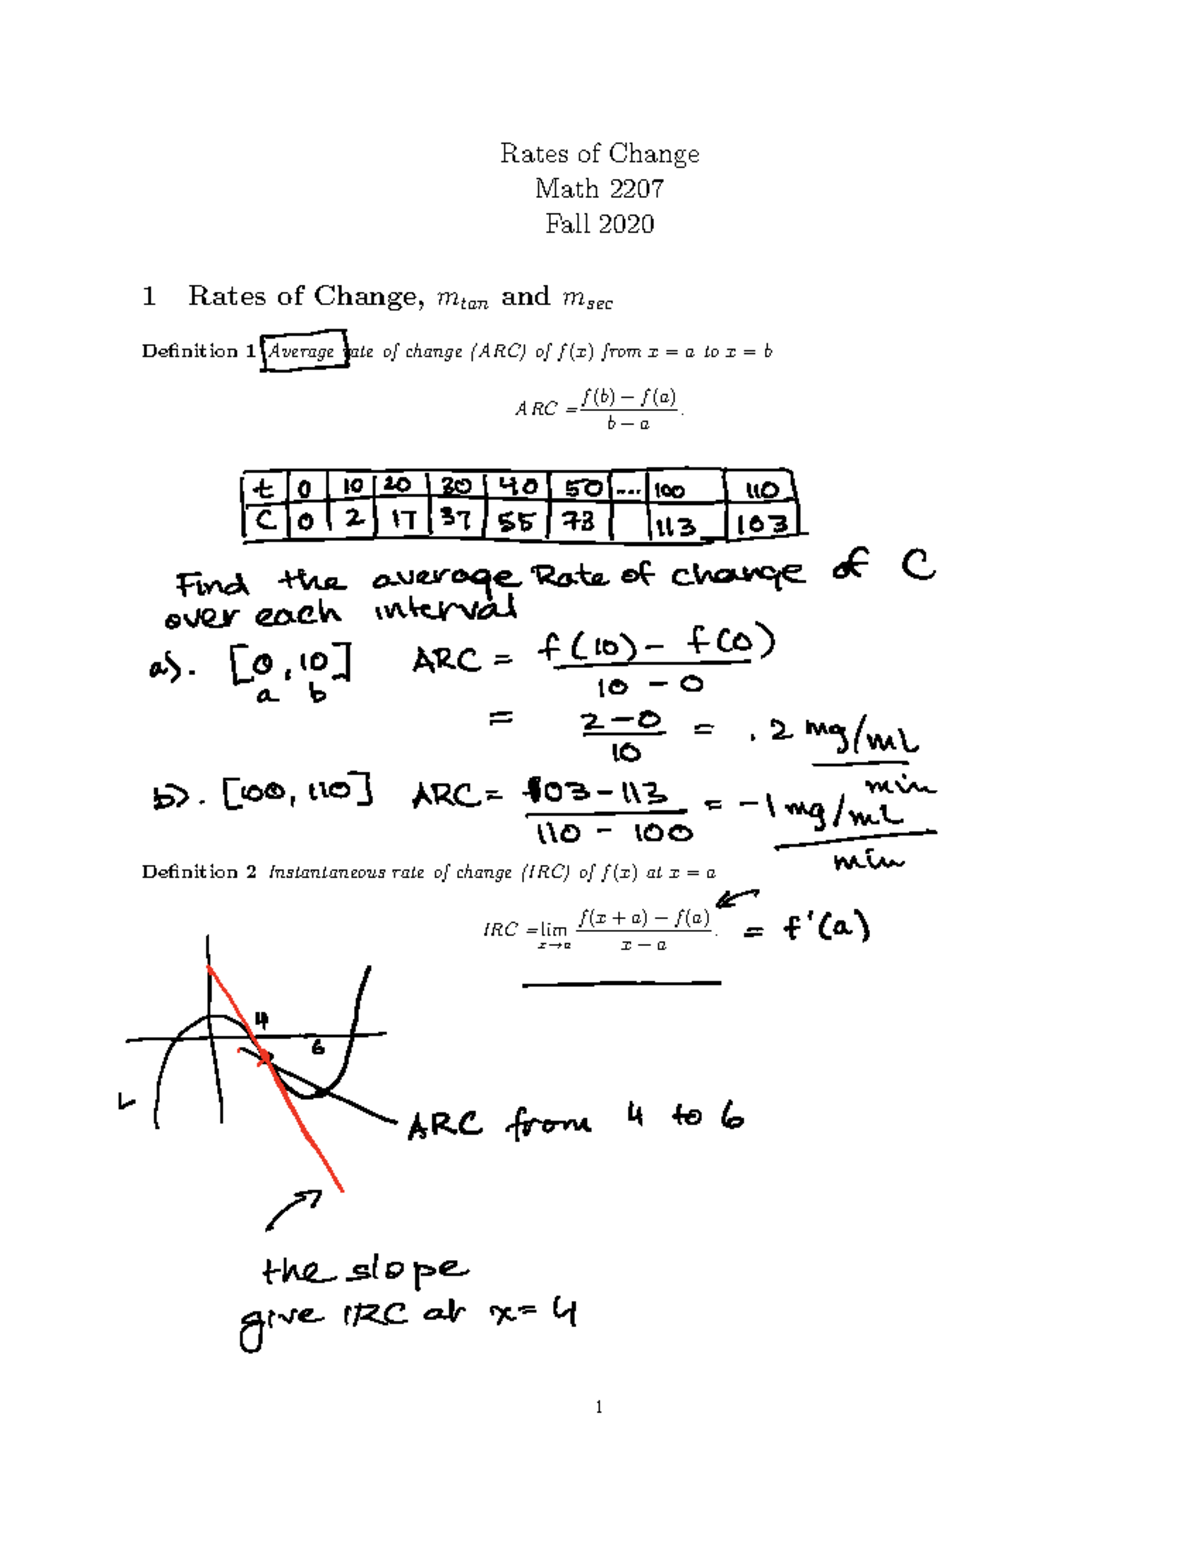 Rates of Change
Math 2207
Fall 2020
1 Rates of Change, m_tan and m_sec
Definition 1 Average rate of change (ARC) of f(x) from x = a to x = b
ARC = (f(b) − f(a)) / (b − a).
t 0 10 20 30 40 50 .... 100 110
C 0 2 17 37 55 73 113 103
Find the average Rate of change of C
over each interval
a). [0, 10] ARC = (f(10) - f(0)) / (10 - 0)
a b
= (2-0) / 10 = .2 mg/mL / min
b). [100, 110] ARC = (103-113) / (110 - 100) = -1 mg/mL / min
Definition 2 Instantaneous rate of change (IRC) of f(x) at x = a
IRC = lim x→a (f(x + a) − f(a)) / (x − a). = f'(a)
4
6
ARC from 4 to 6
the slope
give IRC at x = 4
1